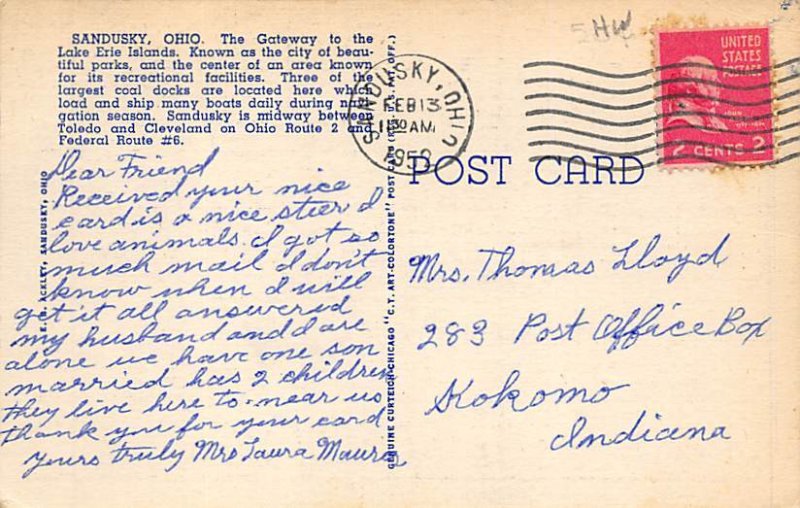 SANDUSKY, OHIO. The Gateway to the
Lake Erie Islands. Known as the city of beau-
tiful parks, and the center of an area known
for its recreational facilities. Three of the
largest coal docks are located here which
load and ship many boats daily during navi-
gation season. Sandusky is midway between
Toledo and Cleveland on Ohio Route 2 and
Federal Route #6.
Dear Friend
Received your nice
card is a nice steer I
love animals. I got so
much mail I don't
know when I will
get it all answered
my husband and I are
alone we have one son
married has 2 children
they live here to near us
thank you for your card
yours truly Mrs Laura
ACKLEY, SANDUSKY, OHIO
GENUINE CURTEICH-CHICAGO "C.T. ART-COLORTONE" POST CARD (REG. U.S. PAT. OFF.)
SANDUSKY, OHIO
FEB 13
11 30 AM
POST CARD
5HW
UNITED
STATES
POSTAGE
2 CENTS 2
Mrs. Thomas Lloyd
283 Post Office Box
Kokomo
Indiana